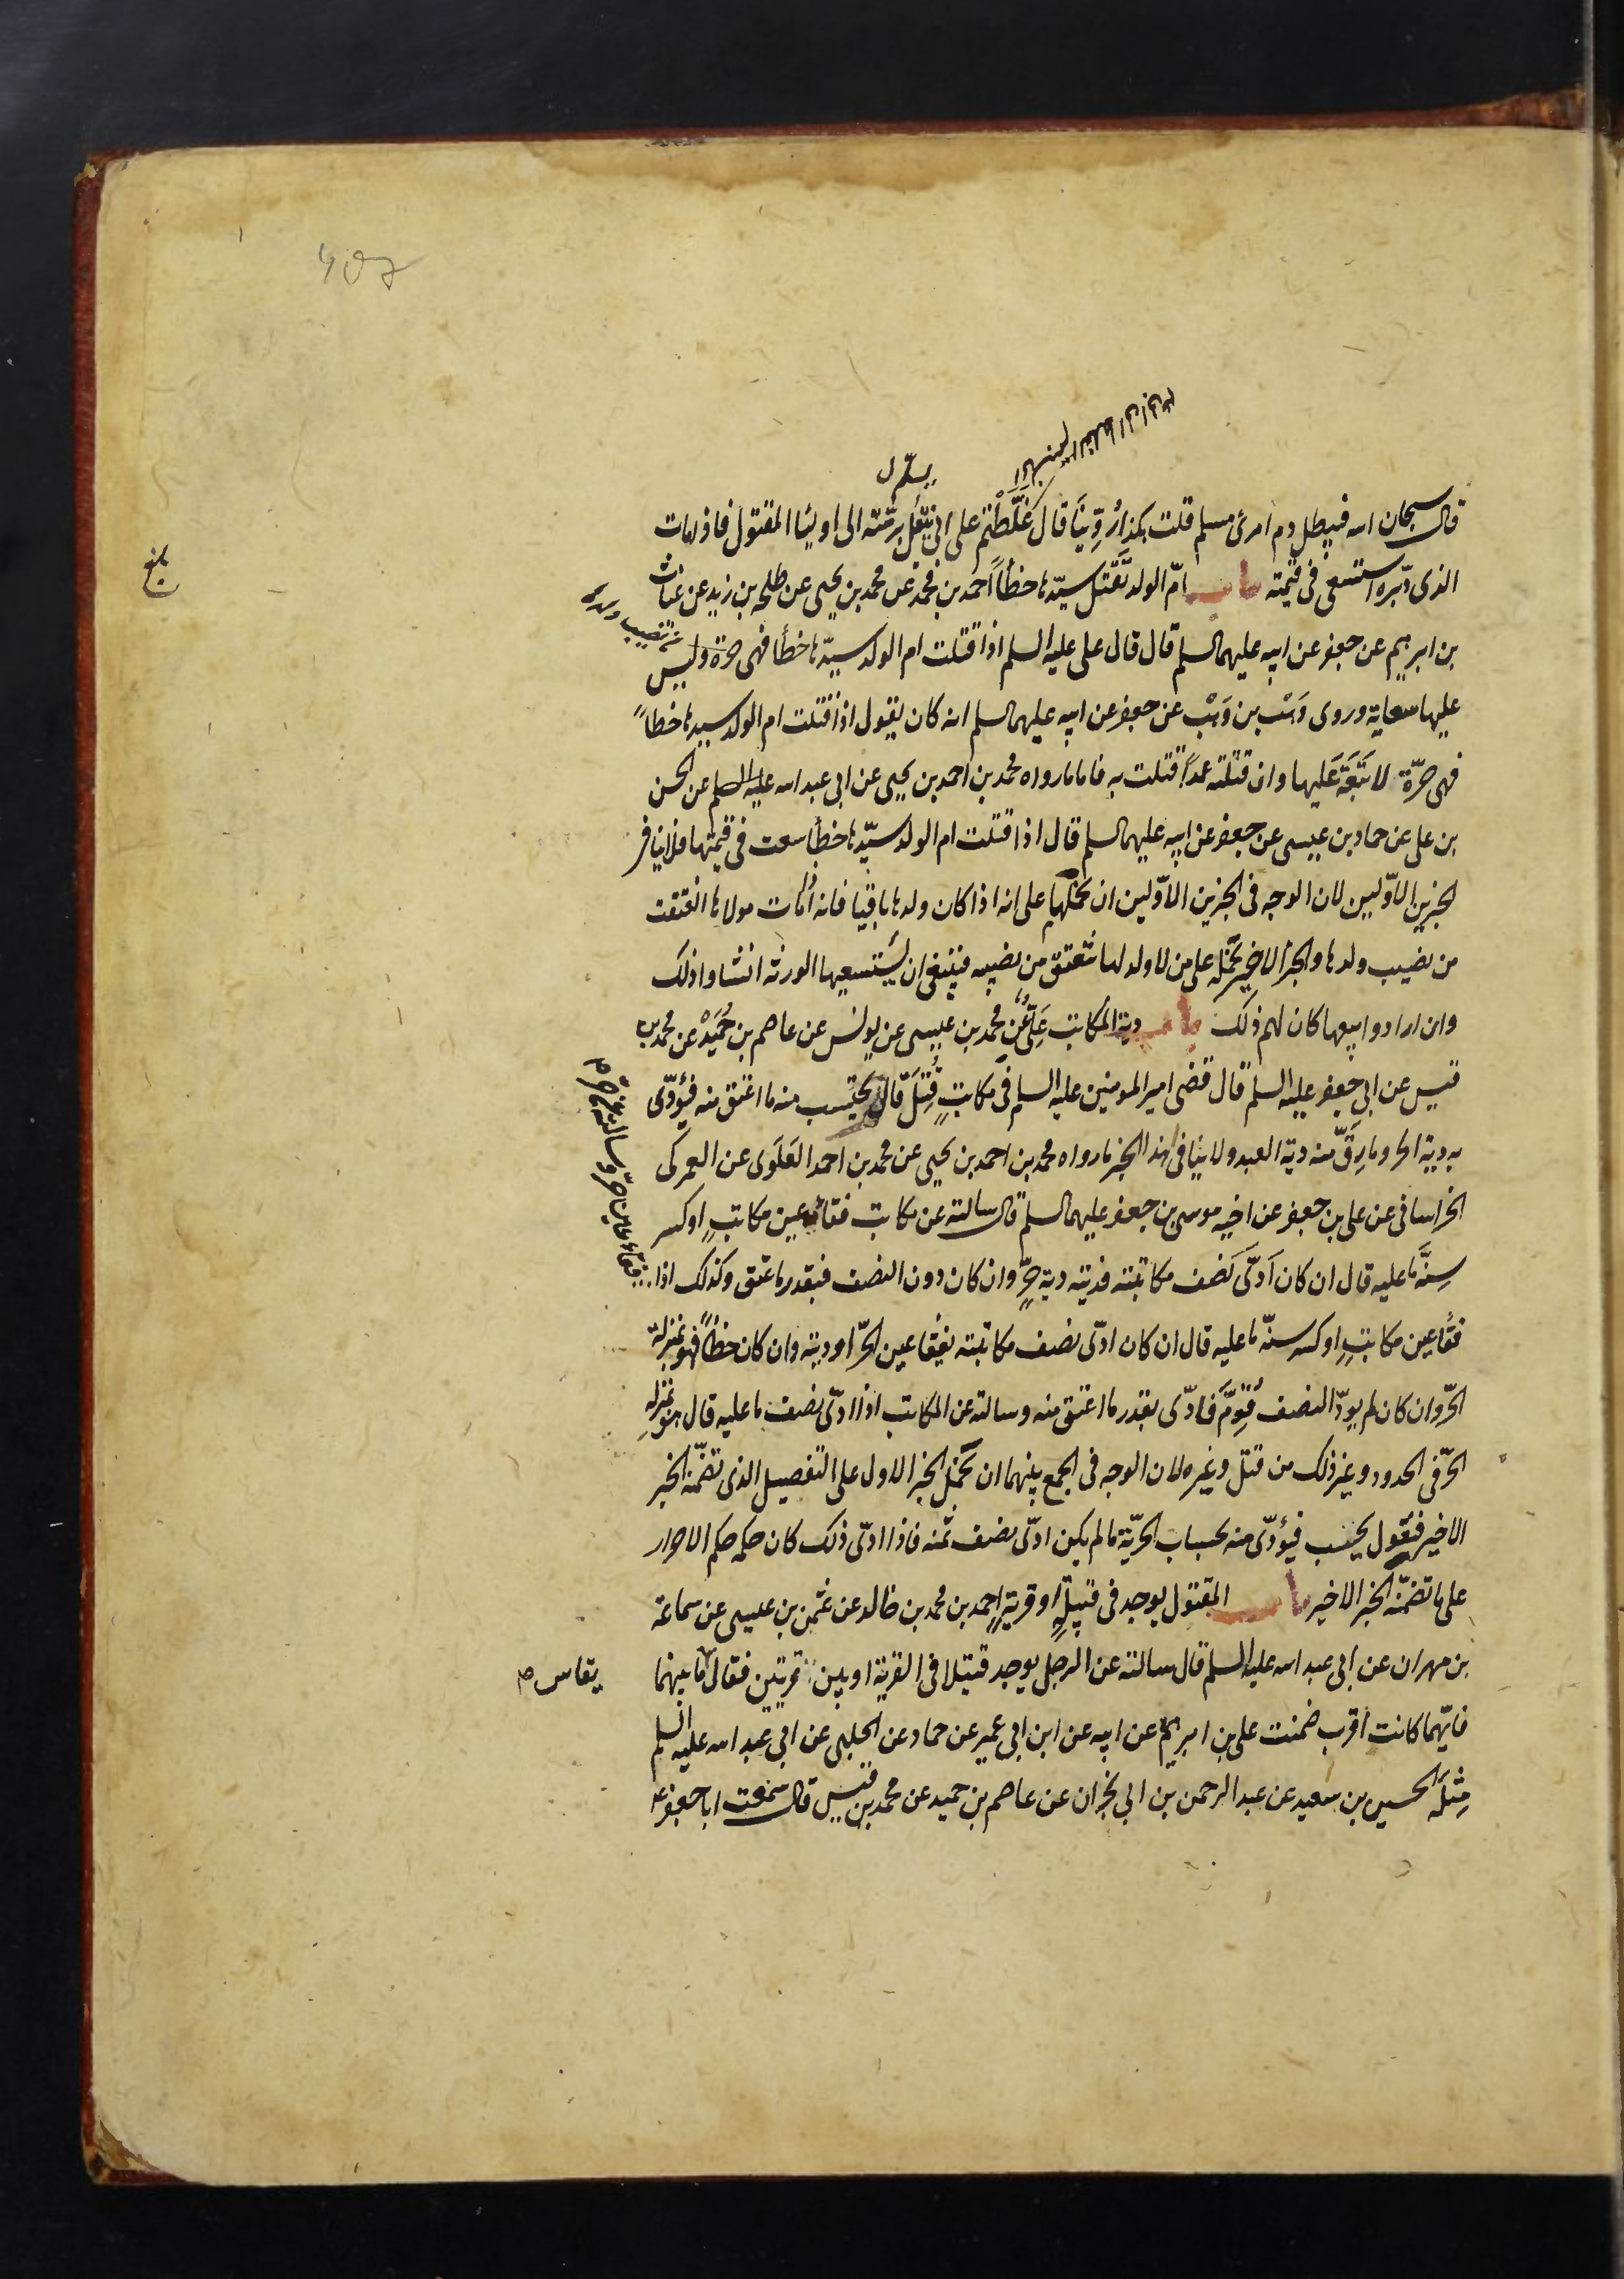 قال سبحان الله فيبطل دم امرئ مسلم قلت هكذا رُوِّينَا قال غَلَطْتم على ابي يُتَلُّ برمّته الى اوليا المقتول فاذا مات
يسلّم ل
الذى دبّره استسعى فى قيمته باب امّ الولد تَقْتل سيّدها خطأً احمد بن محمد عن محمد بن يحيى عن طلحة بن زيد عن غياث
بن ابرهيم عن جعفر عن ابيه عليهما السلم قال قال على عليه السلم اذا قتلت ام الولد سيّدها خطأ فهى حرة وليس
عليها سعاية وروى وَهْب بن وَهْب عن جعفر عن ابيه عليهما السلم انه كان يقول اذا قتلت ام الولد سيدها خطاً
فهى حرّة لا تَبَعَةَ عَليها وان قتلته عمداً قتلت به فاما ما رواه محمد بن احمد بن يحيى عن ابى عبد الله عليه السلم عن الحسن
بن على عن حماد بن عيسى عن جعفر عن ابيه عليهما السلم قال اذا قتلت ام الولد سيّدها خطأ سعت فى قيمتها فلا ينافى
الخبرين الاوّليين لان الوجه فى الخبرين الاوّلين ان نحملهما على انه اذا كان ولدها باقيا فانه اذا مات مولاها انعتقت
من نصيب ولدها والخبر الاخير نحمله على من لا ولد لها تنعتق من نصيبه فينبغى ان يستسعيها الورثه ان شاوا ذلك
وان ارادوا بيعها كان لهم ذلك باب دية المكاتب عَلىّ عن محمد بن عيسى عن يونس عن عاصم بن حُمَيْد عن محمد بن
قيس عن ابى جعفر عليه السلم قال قضى امير المومنين عليه السلم فى مكاتبٍ قُتِلَ قال يحتسب منه ما اعتق منه فيؤدّى
به دية الحر وما رِقّ منه دية العبد ولا ينافى هذا الخبر ما رواه محمد بن احمد بن يحيى عن محمد بن احمد العَلَوى عن العمركى
الخراسانى عن على بن جعفر عن اخيه موسى بن جعفر عليهما السلم قال سالته عن مكاتب فقأ عين مكاتبٍ او كسر
سِنَّه ما عليه قال ان كان اَدّى نَصف مكاتبته فديته دية حرٍّ وان كان دون النصف فبقدر ما عتق وكذلك اذا
فقأ عين مكاتبٍ او كسر سنّه ما عليه قال ان كان ادّى نصف مكاتبته يفقأ عين الحرّ او ديته وان كان خطأً فهو بمنزلة
الحرّ وان كان لم يودّ النصف قُوِّمَ فأدّى بقدر ما اعتق منه وسالته عن المكاتب اذا ادّى نصف ما عليه قال هو بمنزلة
الحرّ فى الحدود وغير ذلك من قتل وغيره لان الوجه فى الجمع بينهما ان نحمل الخبر الاول على التفصيل الذى تضمّنه الخبر
الاخير فنقول يحتسب فيؤدّى منه بحساب الحرّية ما لم يكن ادّى نصف ثمنه فاذا ادّى ذلك كان حكمه حكم الاحرار
على ما تضمّنه الخبر الاخير باب المقتول يوجد فى قبيلةٍ او قريةٍ احمد بن محمد بن خالد عن عثمن بن عيسى عن سماعة
بن مهران عن ابى عبد الله عليه السلم قال سالته عن الرجل يوجد قتيلا فى القرية او بين قريتين فقال ما بينهما
يقاس م
فايّهما كانت أقرب ضمنت على بن ابرهيم عن ابيه عن ابن ابى عمير عن حماد عن الحلبى عن ابى عبد الله عليه السلم
مِثْلَه الحسين بن سعيد عن عبد الرحمن بن ابى نجران عن عاصم بن حميد عن محمد بن قيس قال سمعت ابا جعفر ع
بلغ